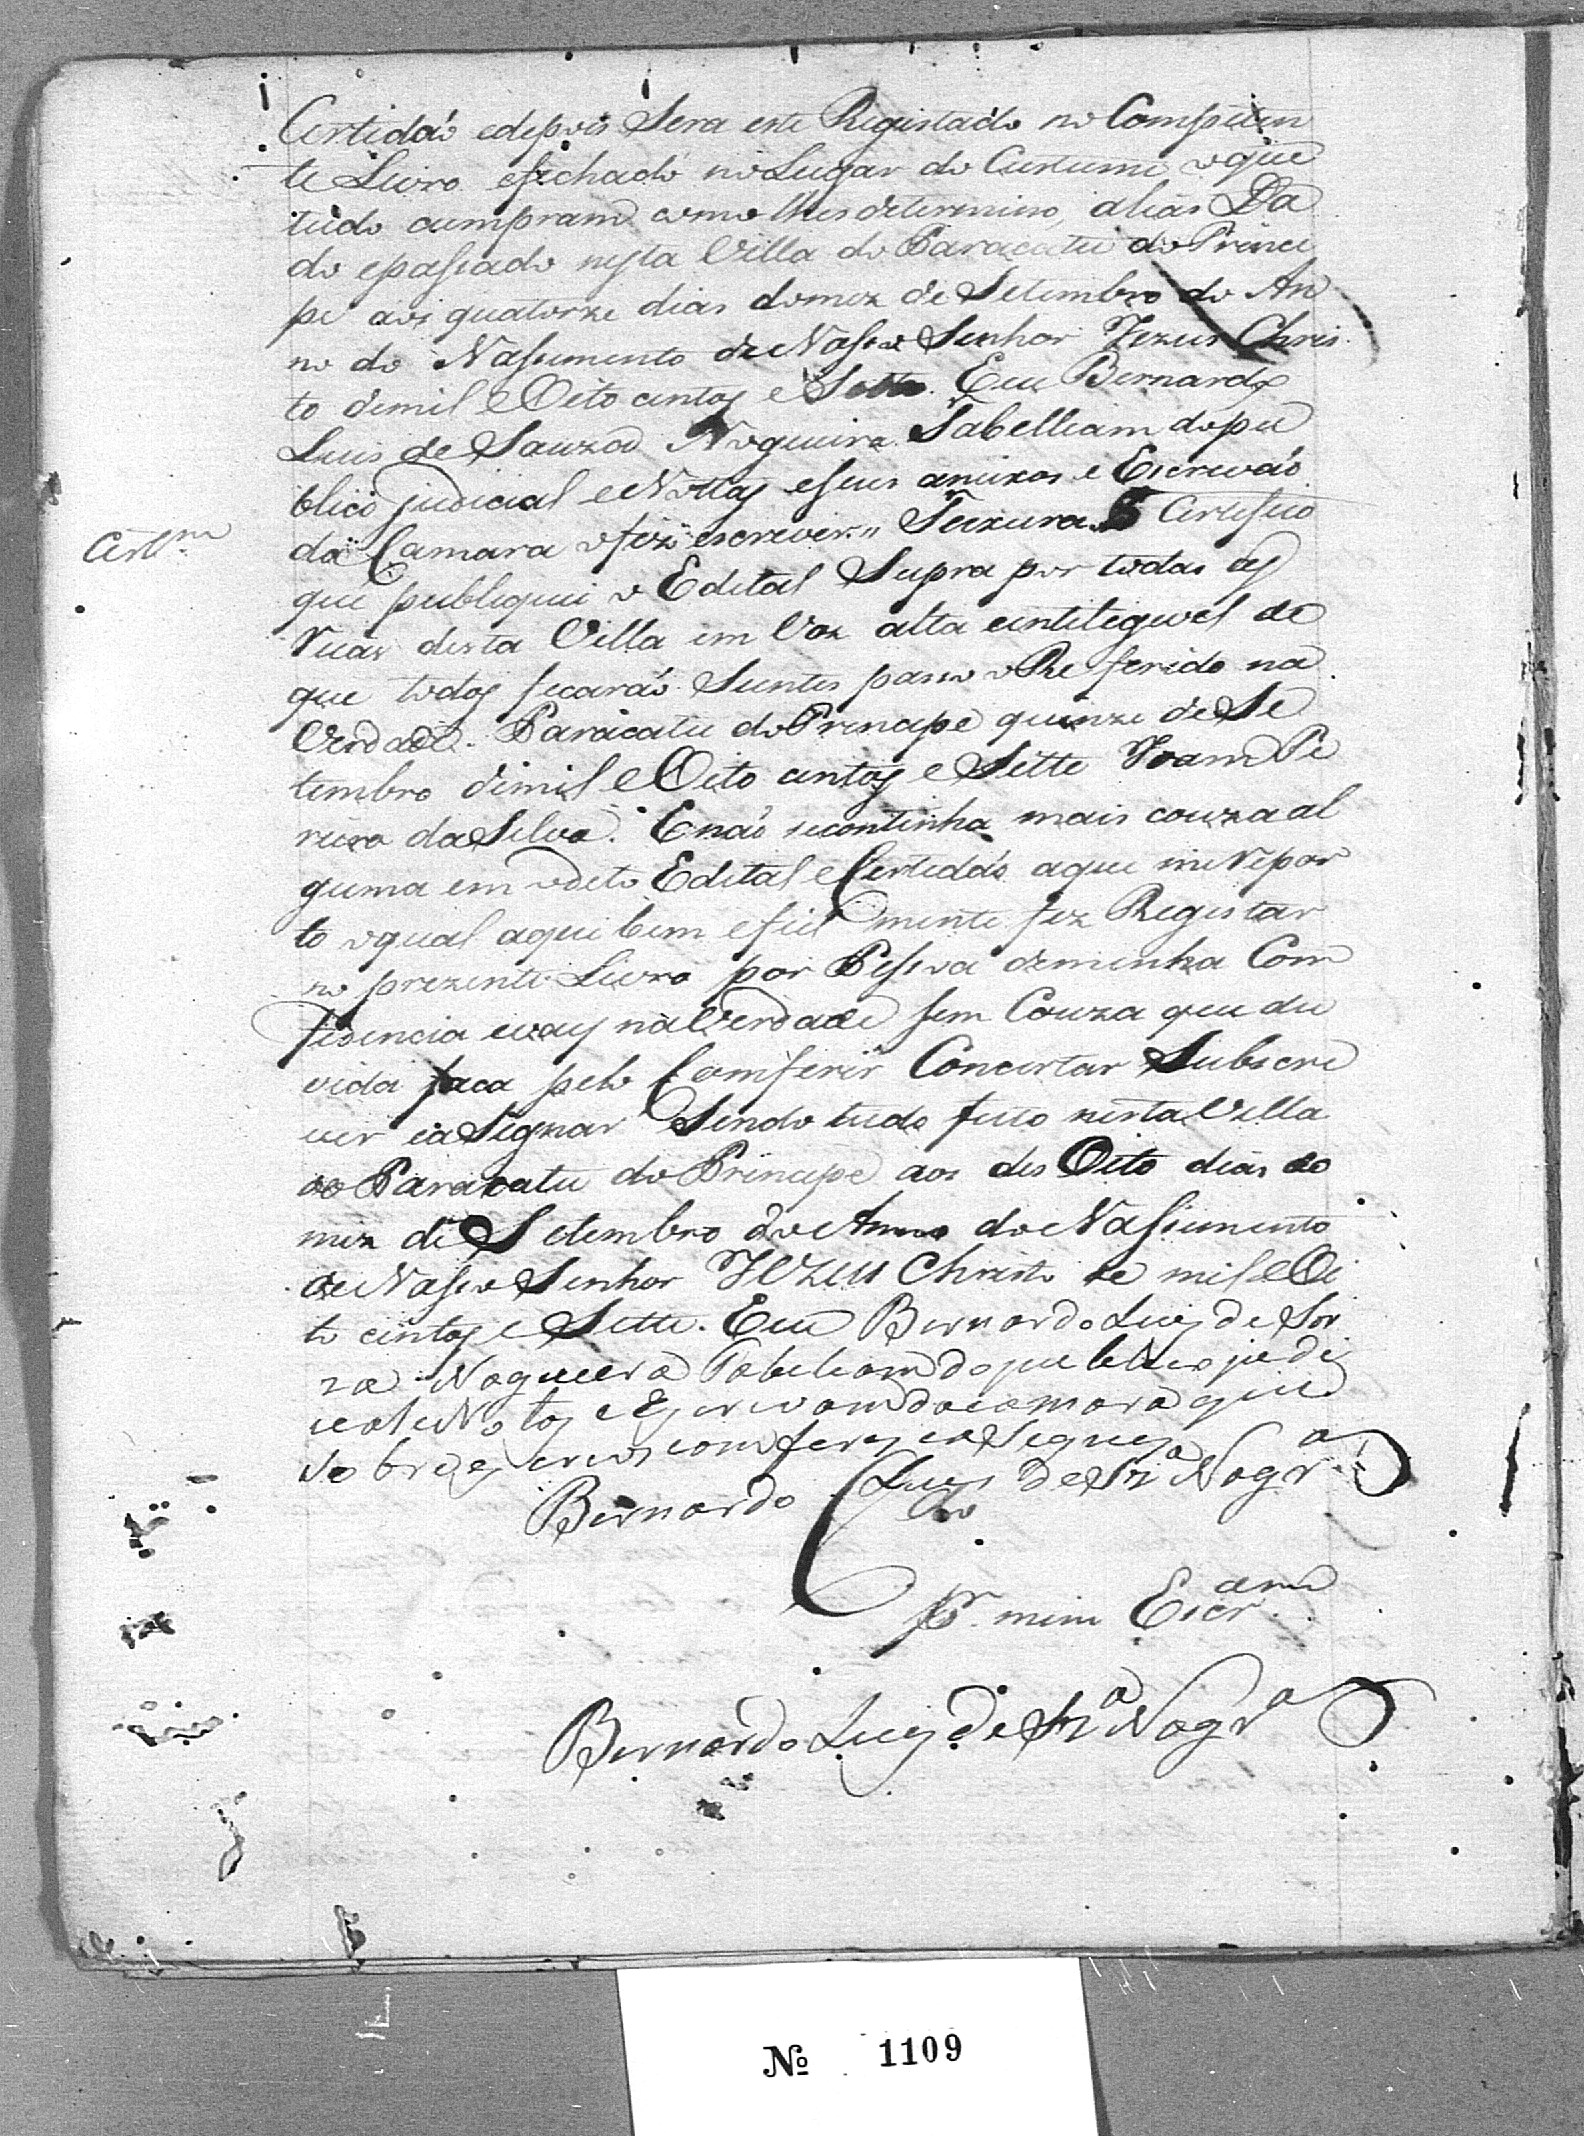 Certidaõ edepois Sera este Registado no Competen
te Livro efichado no Lugar do Custume oque
tudo cumpram como lhes determino, alias Da
do epassado nesta Villa do Paracatu do Princi
pe aos quatorze dias domez de Setembro do An
no do Nassimento de Nosso Senhor Jezus Chris
to demil e Oito centos e Sette. Eu Bernardo
Luis de Sauza Nogueira Tabelliam dopu
blico judicial e Nottas eseus anexos e Escrevaõ
da Camara o fiz escrever.,, Teixeira. Certifico
Certm
que publiquei o Edital Supra por todas as
Ruas desta Villa em Voz alta eintiligivel de
que todos ficaraõ Sientes passo o Referido na
Verdade. Paracatu do Principe quinze de Se
tembro demil e Oito centos e Sette Joam Pe
reira da Silva. Enaõ secontinha mais couza al
guma em odito Edital e Certidaõ aqui me repor
to oqual aqui bem efiel mente fiz Registar
no prezente Livro por Pessoa deminha Com
fidencia evay na Verdade sem Couza que du
vida faca pelo Comferir Concertar Subscre
ver eaSignar Sendo tudo feito nesta Villa
do Paracatu do Principe aos des Oito dias do
mez de Setembro do Anno do Nassimento
de Nosso Senhor Jezus Christo de mil e Oi
to centos e Sette. Eu Bernardo Luis de Sou
za Nogueira Tabeliam do publico judi
cial e Notas e Escrivam da camara que
sobreescrevi comfery easigney
Bernardo Luis de Sza Nogra
Pr mim Escram
Bernardo Luis de Sza Nogra
No 1109